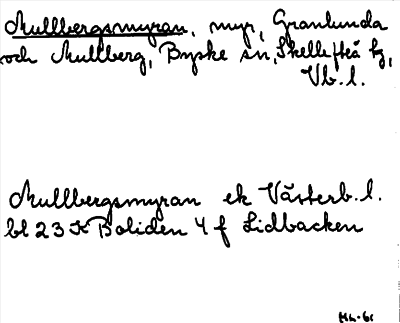 Mullbergsmyran, myr, Granlunda
och Mullberg, Byske sn, Skellefteå tg,
Vb. l.
Mullbergsmyran ek Västerb. l.
bl 23 K Boliden 4 f Lidbacken